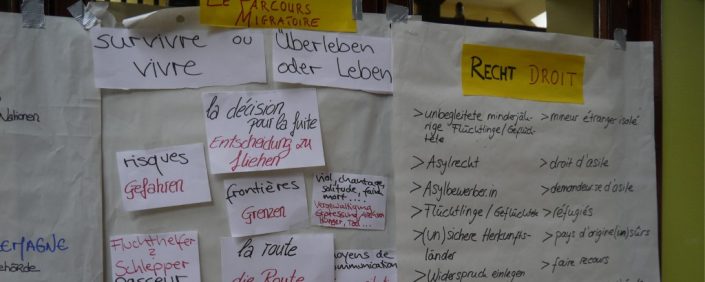 Nationen
EMAGNE
ehörde
LE PARCOURS
MIGRATOIRE
survivre ou
vivre
Überleben
oder Leben
la décision
pour la fuite
Entscheidung zu
fliehen
risques
Gefahren
frontières
Grenzen
viol, chantage,
solitude, faim,
mort....
Vergewaltigung
Hunger, Tod...
Fluchthelfer
&
Schlepper
passeur
la route
die Route
moyens de
communication
RECHT DROIT
>unbegleitete minderjäh
rige "Flüchtlinge/Geflüch-
tete
>mineur étranger isolé
>Asylrecht
>droit d'asile
>Asylbewerber.in
>demandeur.se d'asile
>Flüchtlinge/Geflüchtete
>réfugiés
>(un)sichere Herkunfts-
länder
>pays d'origine(un)sûrs
>Widerspruch einlegen
>faire recours